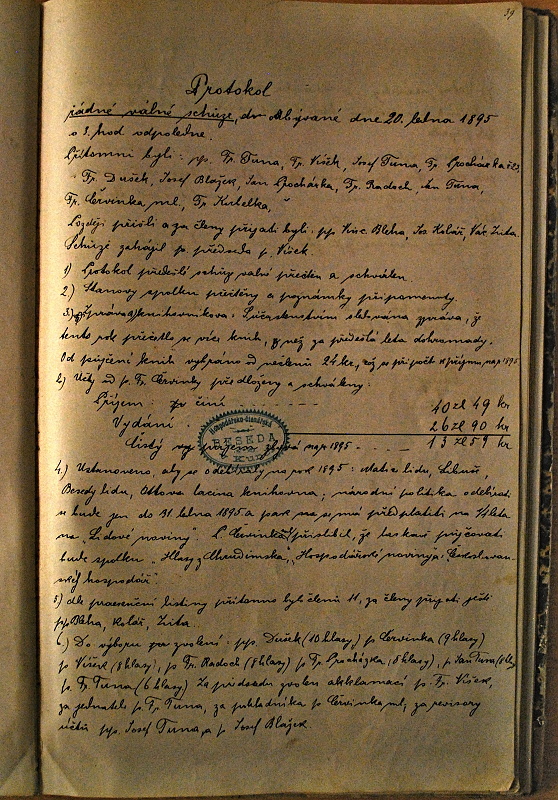 39
Protokol
řádné valné schůze, odbývané dne 20. ledna 1895
o 3. hod odpoledne.
Přítomni byli: pp. Fr. Tuna, Fr. Víšek, Josef Tuna, Fr. Procházka
Fr. Dušek, Josef Blažek, Jan Procházka, Fr. Radoch, Jan Tuna,
Fr. Červinka ml., Fr. Kudelka,
Později přišli a za členy přijati byli: pp. Vinc. Bleha, Jos. Kolář, Vác. Zita.
Schůzi zahájil p. předseda p. Víšek.
1) Protokol předešlé schůze valné přečten a schválen.
2) Stanovy spolku přečteny a poznámky připomenuty.
3) Zpráva knihovníkova: S účastenstvím sledována zpráva, že
tento rok přečetlo se více knih, než za předešlá leta dohromady.
Od půjčení knih vybráno od nečlenů 24 kr, na r. 1895
Účty od p. Fr. Červinky předloženy a schváleny:
Příjem: činí 40 zl 49 kr
Vydání 26 zl 90 kr
Čistý na r. 1895 13 zl 59 kr
Hospodářsko-čtenářská
BESEDA
4.) Ustanoveno, aby se odebíraly na rok 1895: Matice lidu, Libuše,
Besedy lidu, Ottova laciná knihovna; národní politika odebírati
se bude jen do 31 ledna 1895 a pak má se předplatiti na 1/4 leta
na "Lidové noviny". P. Červinka přislíbil, že laskavě půjčovati
bude spolku "Hlasy z Chrudimska", Hospodářské noviny a Českoslovan-
ský hospodář.
5) dle presenční listiny přítomno bylo členů 11, za členy přijati ještě
pp. Bleha, Kolář, Zita.
6.) Do výboru jsou zvoleni: pp. Dušek (10 hlasy) p. Červinka (9 hlasy)
p. Víšek (8 hlasy), p. Fr. Radoch (8 hlasy) p. Fr. Procházka (8 hlasy), p. Jan Tuna
p. Fr. Tuna (6 hlasy) Za předsedu zvolen akklamací p. Fr. Víšek,
za jednatele p. Fr. Tuna, za pokladníka p. Červinka ml., za revisory
účtů pp. Josef Tuna a p. Josef Blažek.